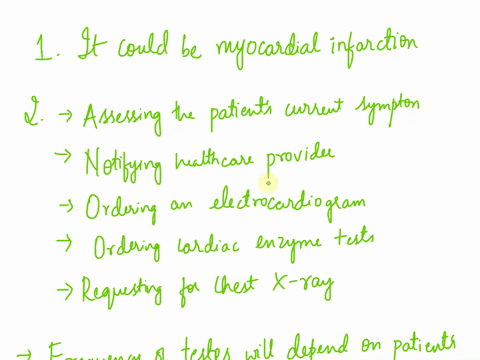 1. It could be myocardial infarction
2. → Assessing the patient's current sympton
→ Notifying healthcare provider
→ Ordering an electrocardiogram
→ Ordering cardiac enzyme tests
→ Requesting for chest X-ray
→ Frequency of testes will depend on patients